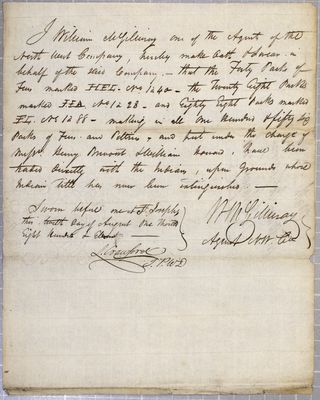 I William McGillivray one of the Agents of the
North West Company, hereby make Oath & Swear in
behalf of the said Company — that the Forty Packs of
Furs marked No 1 @ 40 — the Twenty Eight Packs
marked No 1 @ 28 — and Eighty Eight Packs marked
No 1 @ 88 — making in all One Hundred & fifty Six
Packs of Furs and Peltries — and put under the charge of
Messrs Henry & William — have been
traded directly with the Indians, upon Grounds whose
Indian title has never been extinguished. —
Sworn before me at St Josephs
this tenth Day of August One Thousand
Eight Hundred &
Wm McGillivray
Agent N.W. Co
L. Crawford
J.P.W.D